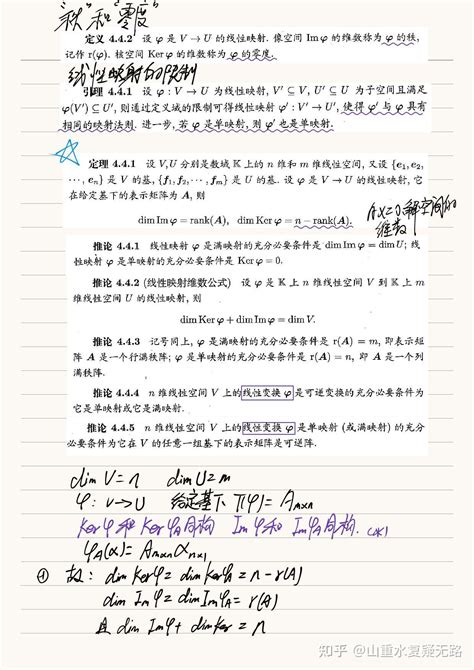 "秩"和"零度"
定义 4.4.2 设 φ 是 V → U 的线性映射. 像空间 Im φ 的维数称为 φ 的秩,
记作 r(φ). 核空间 Ker φ 的维数称为 φ 的零度.
线性映射的限制
引理 4.4.1 设 φ : V → U 为线性映射, V′ ⊆ V, U′ ⊆ U 为子空间且满足
φ(V′) ⊆ U′, 则通过定义域的限制可得线性映射 φ′ : V′ → U′, 使得 φ′ 与 φ 具有
相同的映射法则. 进一步, 若 φ 是单映射, 则 φ′ 也是单映射.
定理 4.4.1 设 V, U 分别是数域 K 上的 n 维和 m 维线性空间, 又设 {e₁, e₂,
⋯, eₙ} 是 V 的基, {f₁, f₂, ⋯, fₘ} 是 U 的基. 设 φ 是 V → U 的线性映射, 它
在给定基下的表示矩阵为 A, 则
dim Im φ = rank(A), dim Ker φ = n − rank(A).
Ax=0 解空间的
维数
推论 4.4.1 线性映射 φ 是满映射的充分必要条件是 dim Im φ = dim U; 线
性映射 φ 是单映射的充分必要条件是 Ker φ = 0.
推论 4.4.2 (线性映射维数公式) 设 φ 是 K 上 n 维线性空间 V 到 K 上 m
维线性空间 U 的线性映射, 则
dim Ker φ + dim Im φ = dim V.
推论 4.4.3 记号同上, φ 是满映射的充分必要条件是 r(A) = m, 即表示矩
阵 A 是一个行满秩阵; φ 是单映射的充分必要条件是 r(A) = n, 即 A 是一个列
满秩阵.
推论 4.4.4 n 维线性空间 V 上的线性变换 φ 是可逆变换的充分必要条件为
它是单映射或它是满映射.
推论 4.4.5 n 维线性空间 V 上的线性变换 φ 是单映射 (或满映射) 的充分
必要条件为它在 V 的任意一组基下的表示矩阵是可逆阵.
dim V=n dim U=m
φ: V→U 给定基下 T(φ)= Aₘₓₙ
Ker φ 和 Ker φ_A 同构 Im φ 和 Im φ_A 同构.
φ_A(α)= Aₘₓₙ αₙₓ₁
① 故: dim Ker φ = dim Ker φ_A = n − r(A)
dim Im φ = dim Im φ_A = r(A)
且 dim Im φ + dim Ker = n
知乎 @山重水复疑无路